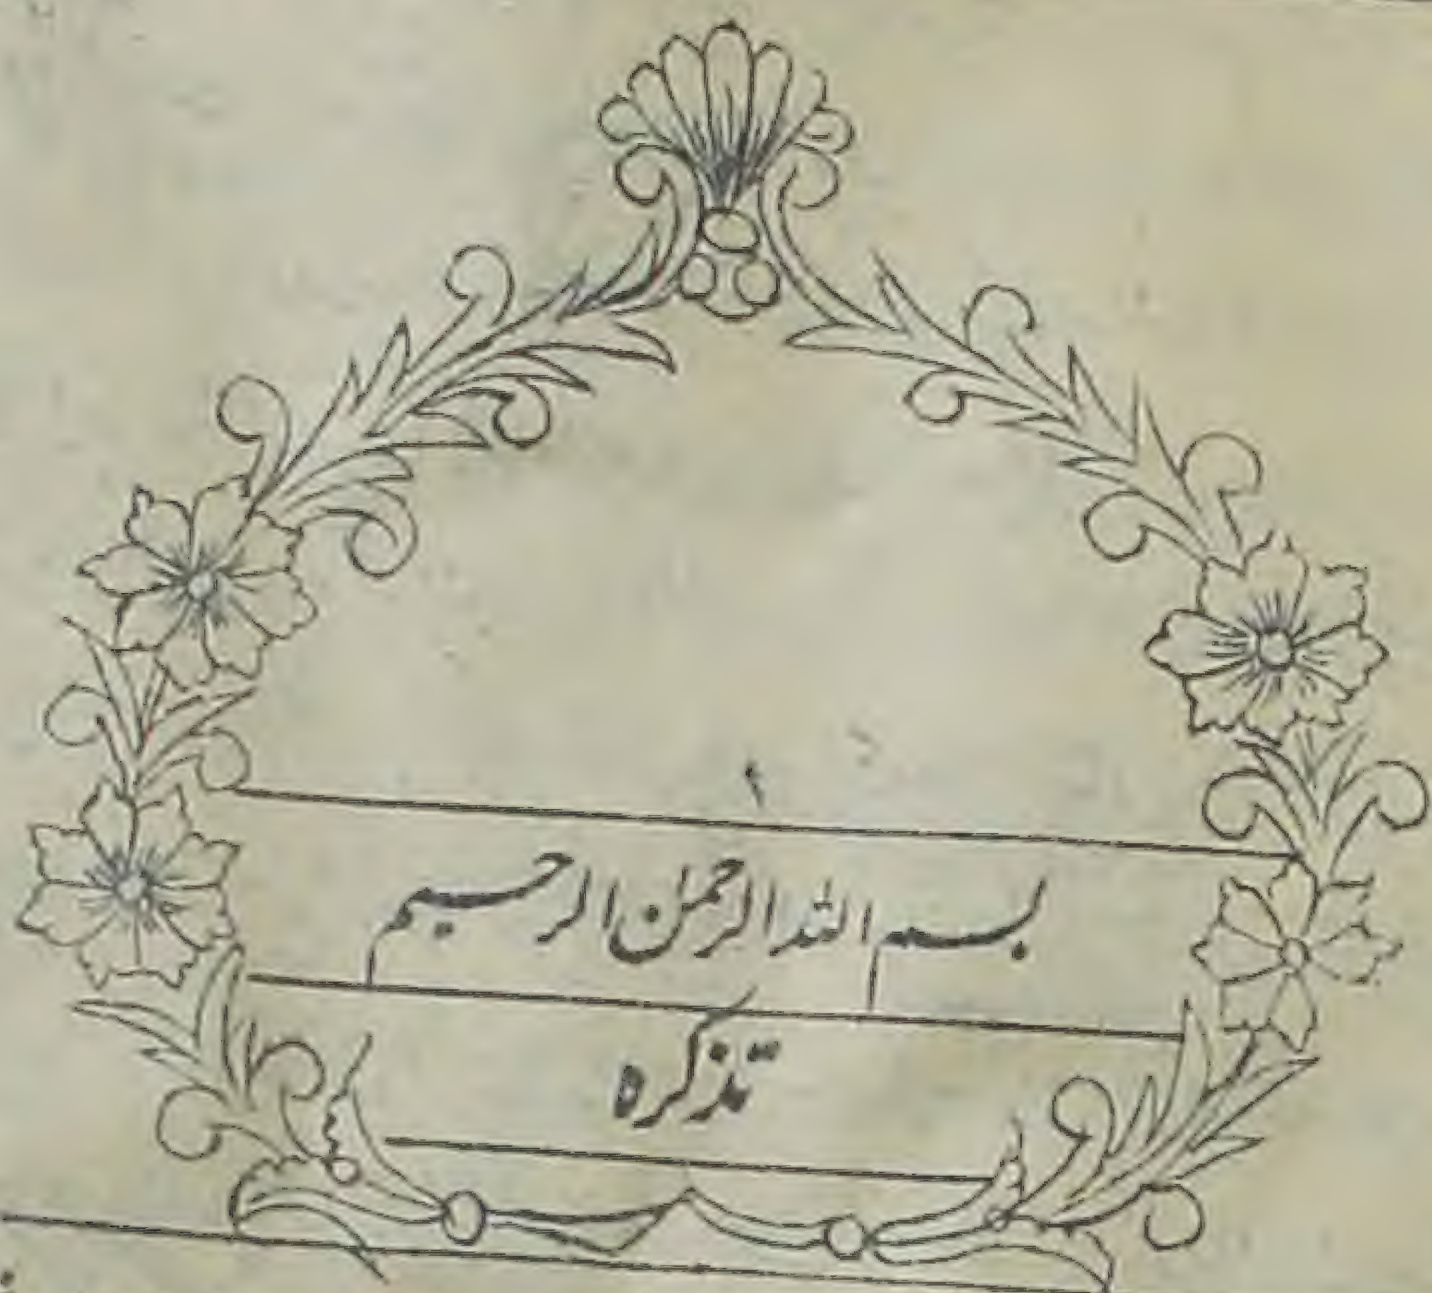 بسم الله الرحمن الرحیم
تذکره